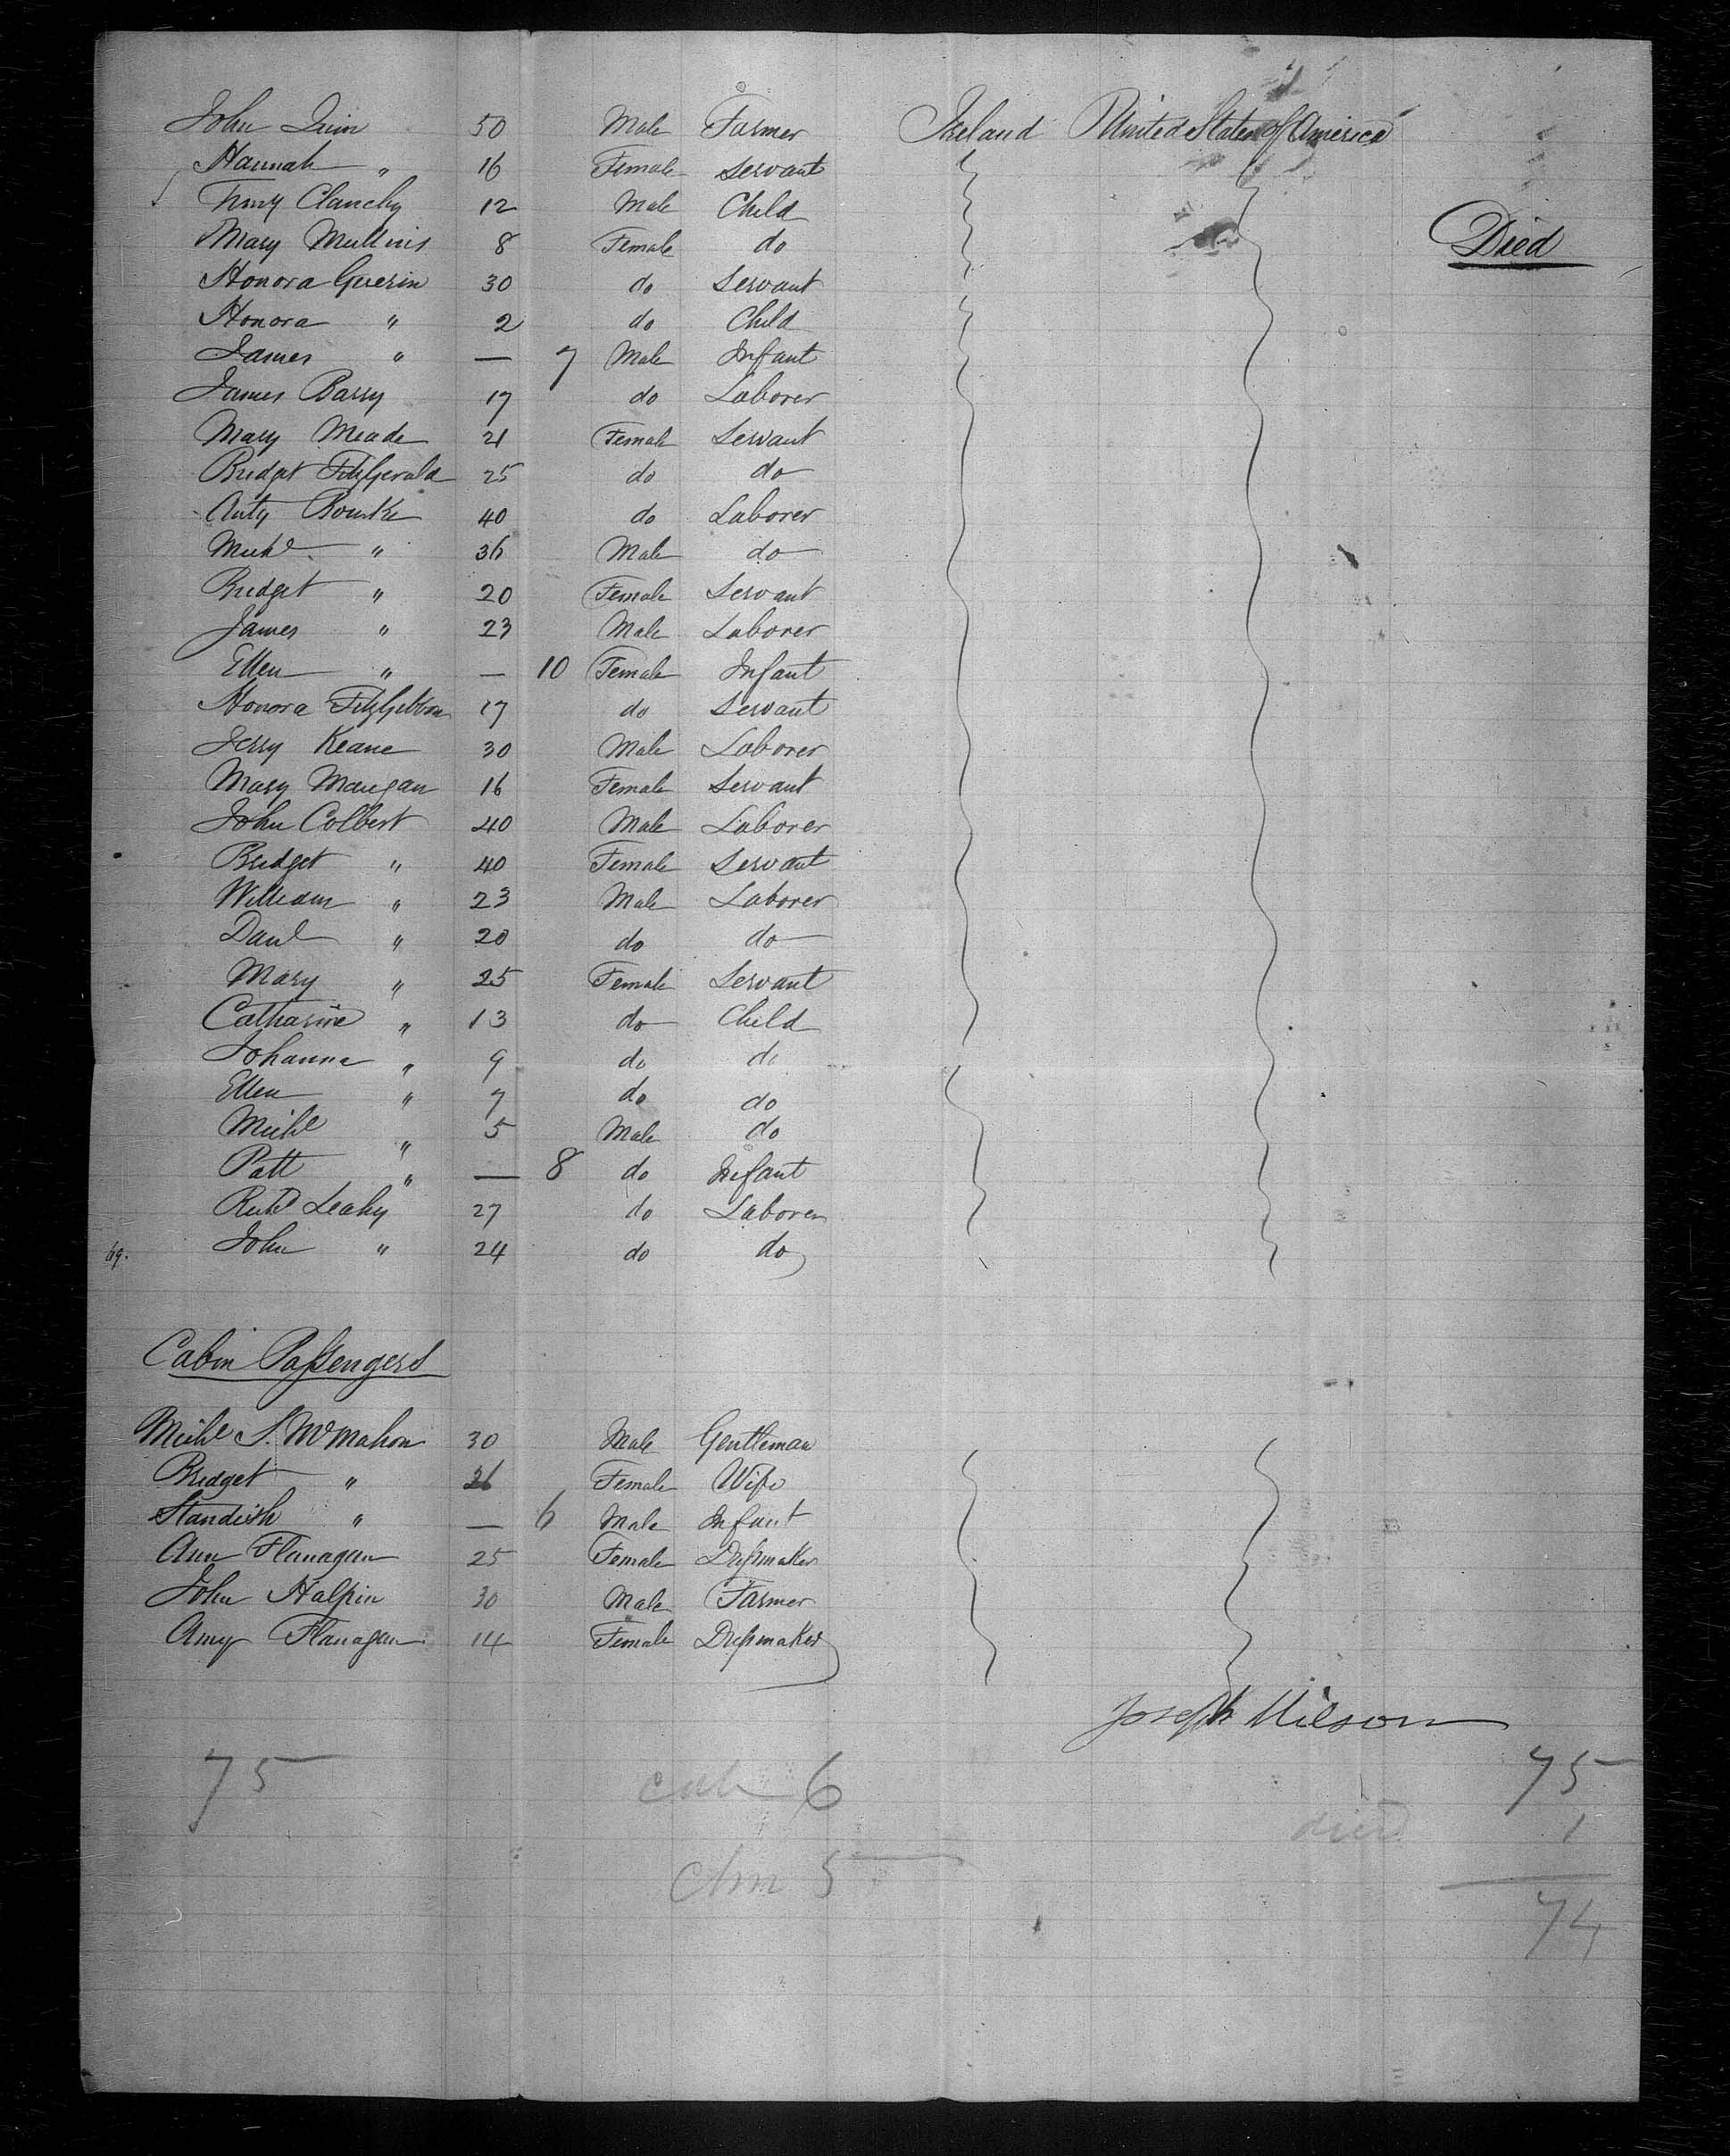 John Quin 50 Male Farmer Ireland United States of America
Hannah " 16 Female Servant
Timy Clanchy 12 Male Child
Mary Mullins 8 Female do Died
Honora Guerin 30 do Servant
Honora " 2 do Child
James " — 7 Male Infant
James Barry 17 do Laborer
Mary Meade 21 Female Servant
Bridget FitzGerald 25 do do
Anty Rourke 40 do Laborer
Michl " 36 Male do
Bridget " 20 Female Servant
James " 23 Male Laborer
Ellen " — 10 Female Infant
Honora FitzGibbon 17 do Servant
Jerry Keane 30 Male Laborer
Mary Mangan 16 Female Servant
John Colbert 40 Male Laborer
Bridget " 40 Female Servant
William " 23 Male Laborer
Danl " 20 do do
Mary " 25 Female Servant
Catharine " 13 do Child
Johanna " 9 do do
Ellen " 7 do do
Michl " 5 Male do
Patt " — 8 do Infant
Richd Leahy 27 do Laborer
69. John " 24 do do
Cabin Passengers
Michl S. McMahon 30 Male Gentleman
Bridget " 26 Female Wife
Standish " — 6 Male Infant
Ann Flanagan 25 Female Dressmaker
John Halpin 30 Male Farmer
Amy Flanagan 14 Female Dressmaker
Joseph Wilson
75 cab 6 75
died 1
5
74